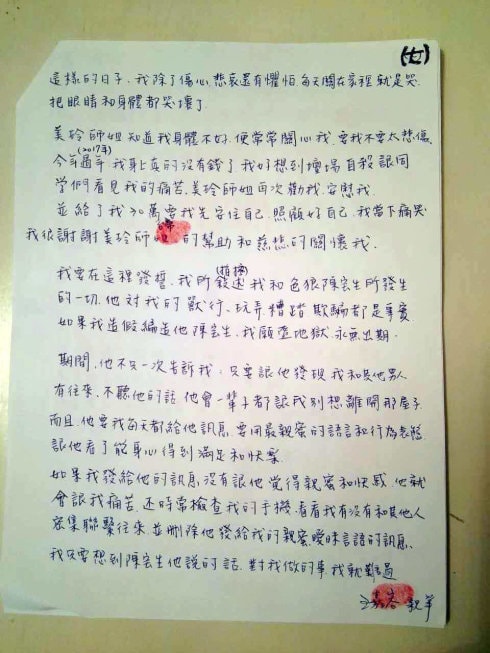 (七)
這樣的日子、我除了傷心、悲哀還有懼怕、每天關在家裡就是哭、
把眼睛和身體都哭壞了
美玲師姐知道我身體不好、便常常關心我、要我不要太悲傷、
(2017年)
今年過年、我身上真的沒有錢了、我好想到壇場自殺、讓同
學們看見我的痛苦、美玲師姐再次勸我、安慰我、
並給了我30萬要我先安住自己、照顧好自己、我當下痛哭
我很謝謝美玲師姐的幫助和慈悲的關懷我、
我要在這裡發誓、我所敍述我和色狼陳宏生所發生
的一切、他對我的獸行、玩弄糟蹋欺騙都是事實
如果我造假編造他陳宏生、我願墮地獄、永無出期、
期間、他不只一次告訴我、只要讓他發現我和其他男人
有往來、不聽他的話、他會一輩子都讓我別想離開那屋子
而且、他要我每天都給他訊息、要用最親蜜的語言和行為表態
讓他看了能身心得到滿足和快樂
如果我發給他的訊息、沒有讓他覺得親蜜和快感、他就
會讓我痛苦、还時常檢查我的手機、看看我有沒有和其他人
密集聯繫往來、並刪除他發給我的親蜜曖昧言語的訊息、
我只要想到陳宏生他說的話、對我做的事我就難過
親筆